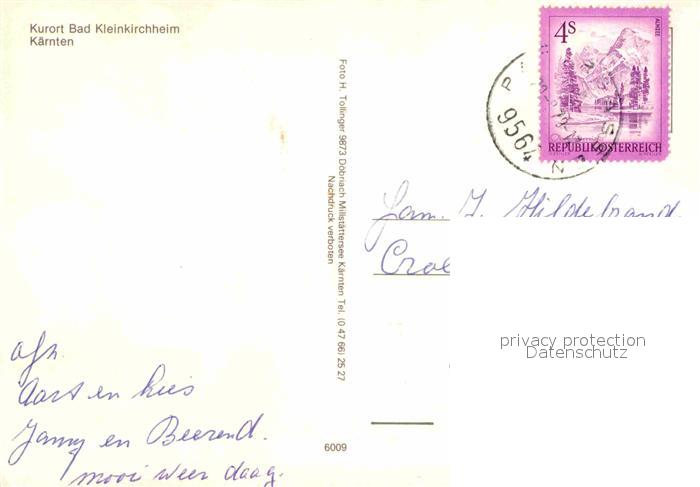 Kurort Bad Kleinkirchheim
Kärnten
Foto H. Tollinger 9873 Döbriach Millstättersee Kärnten Tel. (0 47 66) 25 27
Nachdruck verboten
6009
4S
ALMSEE
REPUBLIK ÖSTERREICH
9564
Fam. J. Hildebrand
privacy protection
Datenschutz
afz.
Aart en Kees
Janny en Beerend.
mooi weer daag.